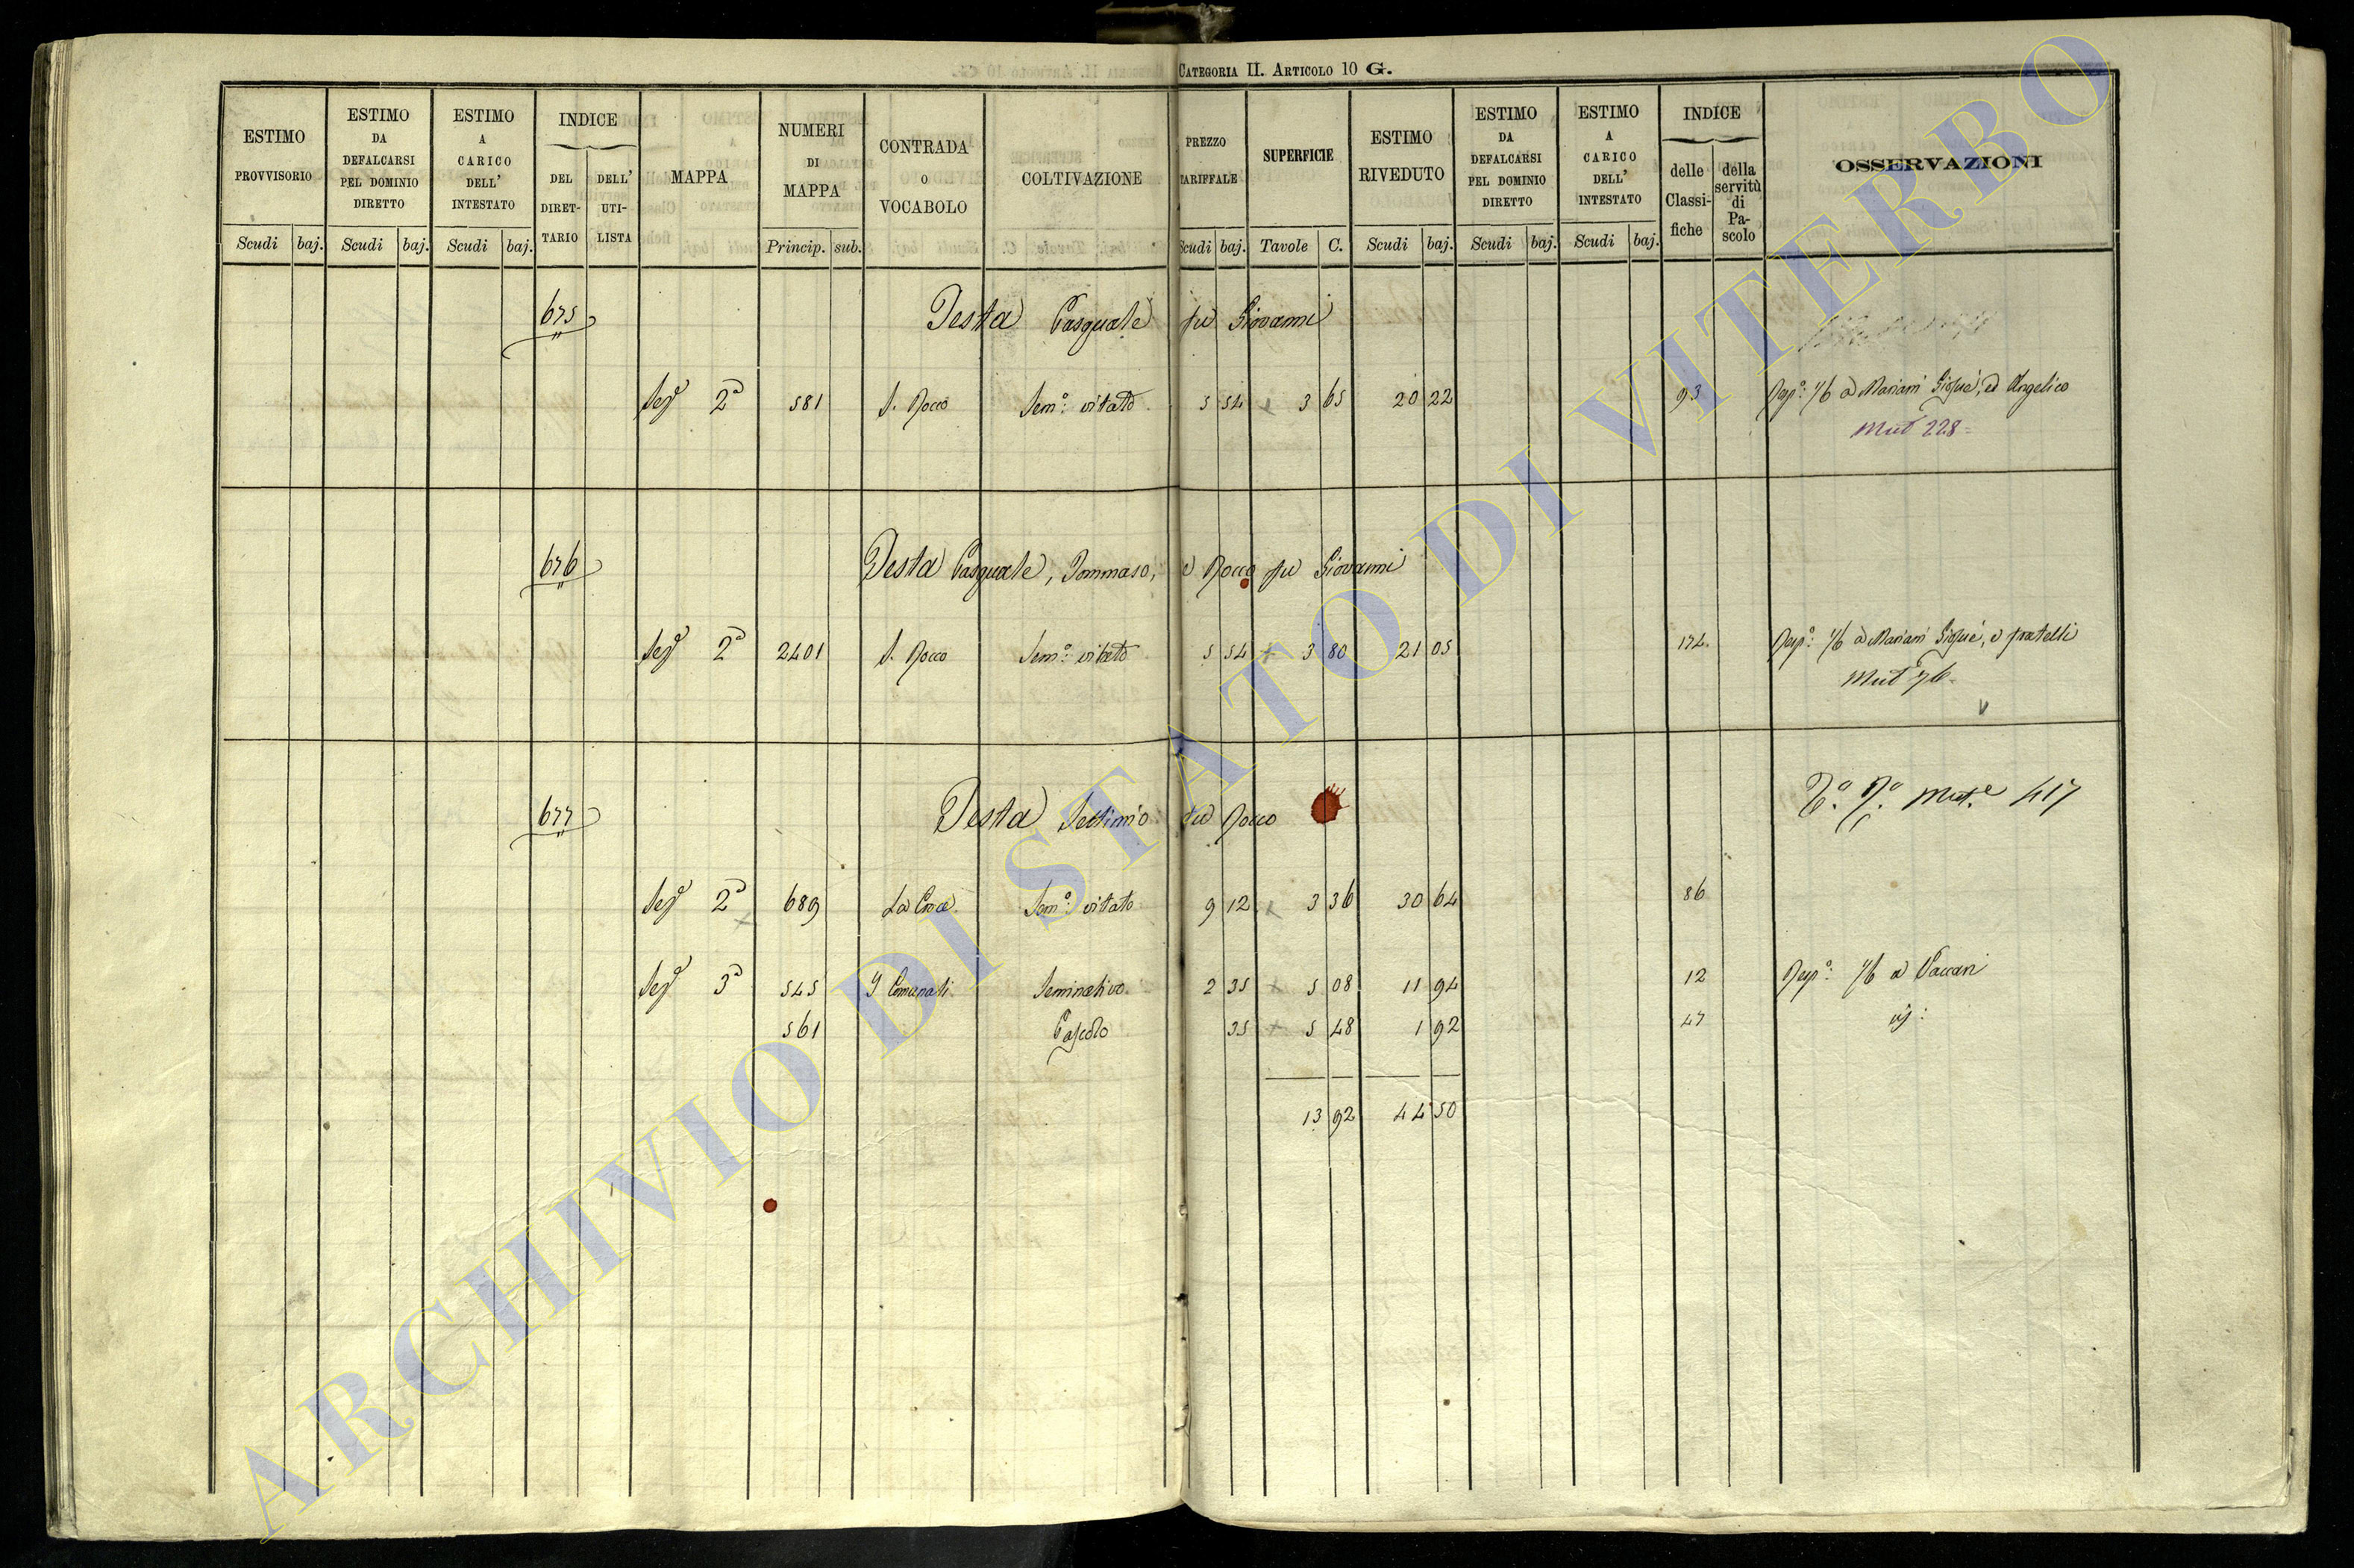 CATEGORIA II. ARTICOLO 10 G.
ESTIMO PROVVISORIO Scudi baj. ESTIMO DA DEFALCARSI PEL DOMINIO DIRETTO Scudi baj. ESTIMO A CARICO DELL' INTESTATO Scudi baj. INDICE DEL DIRET-TARIO DELL' UTI-LISTA MAPPA NUMERI DI MAPPA Princip. sub. CONTRADA O VOCABOLO COLTIVAZIONE PREZZO TARIFFALE Scudi baj. SUPERFICIE Tavole C. ESTIMO RIVEDUTO Scudi baj. ESTIMO DA DEFALCARSI PEL DOMINIO DIRETTO Scudi baj. ESTIMO A CARICO DELL' INTESTATO Scudi baj. INDICE delle Classi-fiche della servitù di Pa-scolo OSSERVAZIONI
675 Testa Pasquale fu Giovanni
Seg 2a 581 S. Rocco Semo: vitato 5 54 3 65 20 22 93 Rispo: 1/6 a Mariani Giosuè, ed Angelico
Mut 228
676 Testa Pasquale, Tommaso, e Rocco fu Giovanni
Seg 2a 2401 S. Rocco Semo: vitato 5 54 3 80 21 05 174. Rispo: 1/6 a Mariani Giosuè, e fratelli
Mut 76
V
677 Testa Settimio fu Rocco Mut.e 417
Seg 2a 689 La Cava Semo: vitato 9 12 3 36 30 64 86
Seg 3a 545 I Comunali Seminativo 2 35 5 08 11 94 12 Rispo: 1/6 a Vaccari
561 Pascolo 35 5 48 1 92 47
13 92 44 50
ARCHIVIO DI STATO DI VITERBO